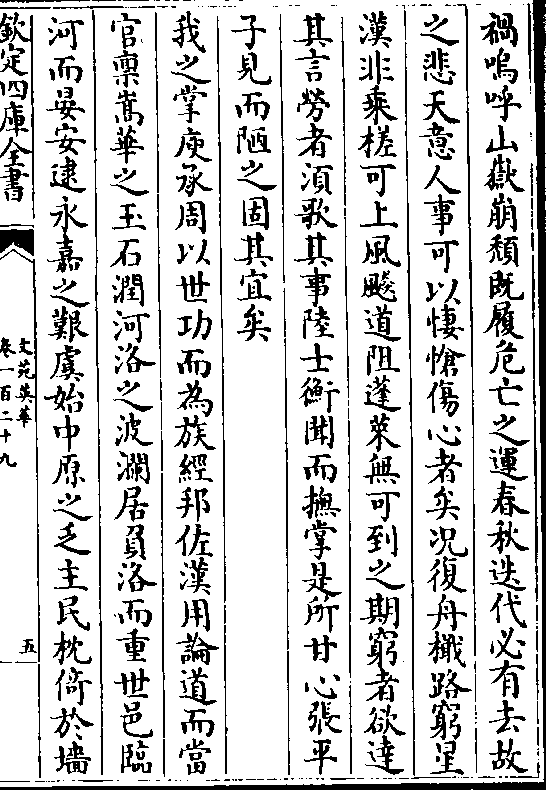 禍嗚呼山嶽崩頹既履危亡之運春秋迭代必有去故
之悲天意人事可以悽愴傷心者矣况復舟檝路窮星
漢非乘槎可上風飈道阻蓬萊無可到之期窮者欲達
其言勞者湏歌其事陸士衡聞而撫掌是所甘心張平
子見而陋之固其宜矣
我之掌庾承周以世功而為族經邦佐漢用論道而當
官禀嵩華之玉石潤河洛之波瀾居負洛而重世邑臨
河而晏安逮永嘉之艱虞始中原之乏主民枕倚於墻
欽定四庫全書
文苑英華
卷一百二十九
五